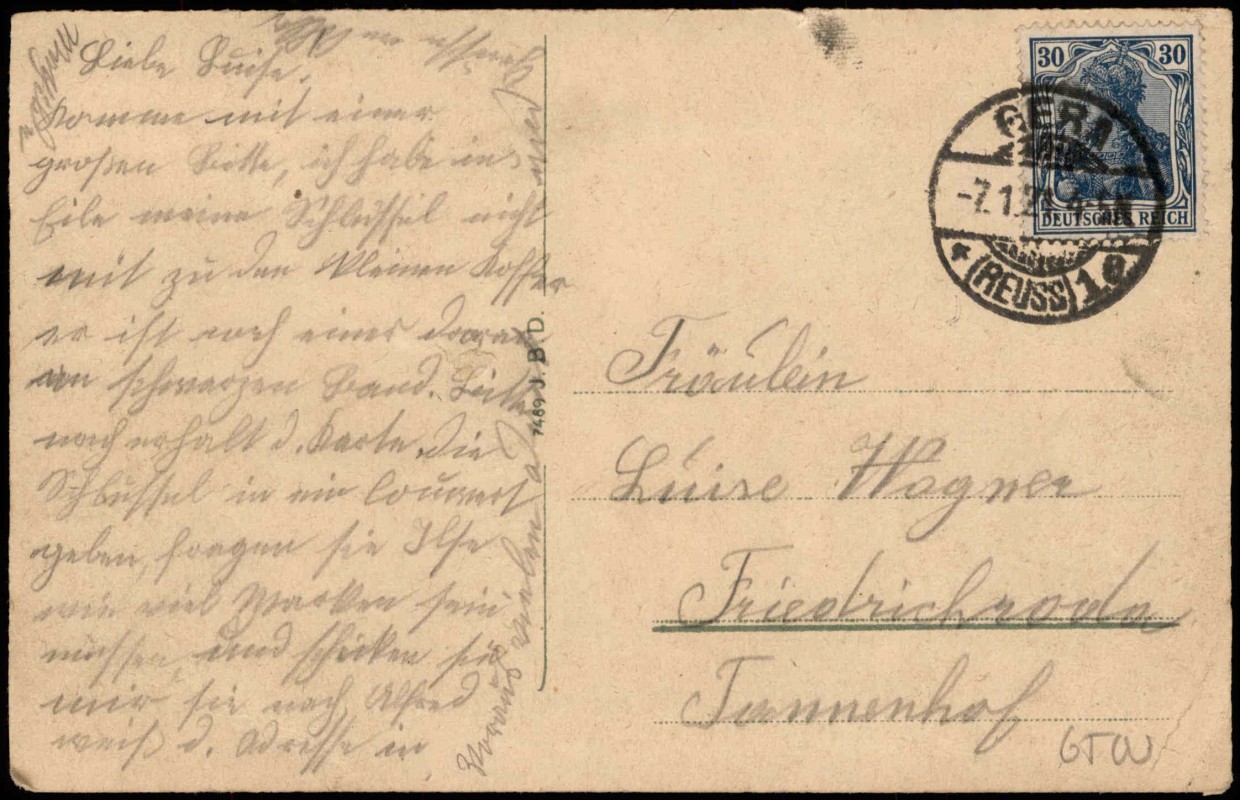 Liebe Luise.
Komme mit einer
großen Bitte, ich habe in
Eile meine Schlüssel nicht
mit zu den kleinen Koffer
er ist noch einer daran
an schwarzen Band. Bitte
nach erhalt d. Karte die
Schlüssel in ein Couvert
geben, fragen sie Ilse
wie viel Marken sein
müssen und schicken sie
mir sie nach Alfred
weiß d. Adresse in
Voraus vielen
30 30
DEUTSCHES REICH
GERA
-7.1.21
* (REUSS) 1a
7489 J. B. D.
Fräulein
Luise Wagner
Friedrichroda
Tannenhof